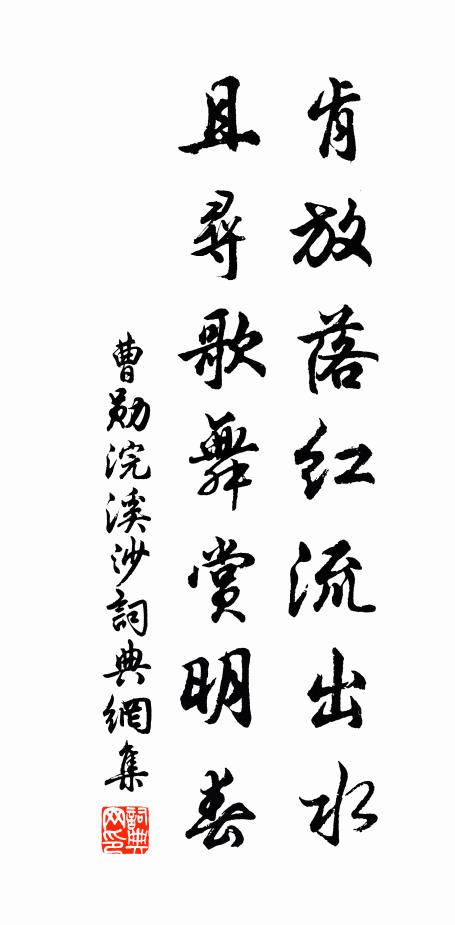 肯放落红流出水
且尋歌舞賞明春
曹勛浣溪沙詞典網集
詞典网印